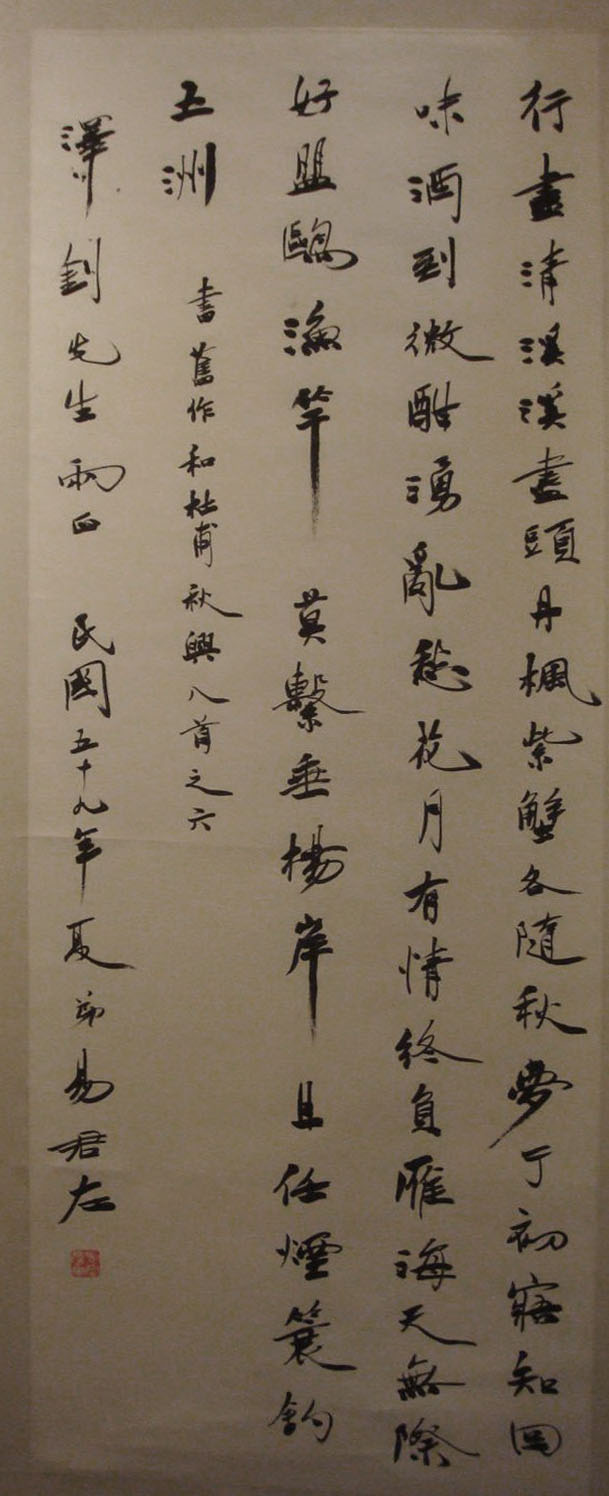 行盡清溪溪盡頭丹楓紫蟹各隨秋夢丁初寤知回
味酒到微酣湧亂愁花月有情終負雁海天無際
好盟鷗漁竿莫繫垂楊岸且任煙簑釣
上洲
書舊作和杜甫秋興八首之六
澤釗先生兩正 民國五十九年夏弟易君左